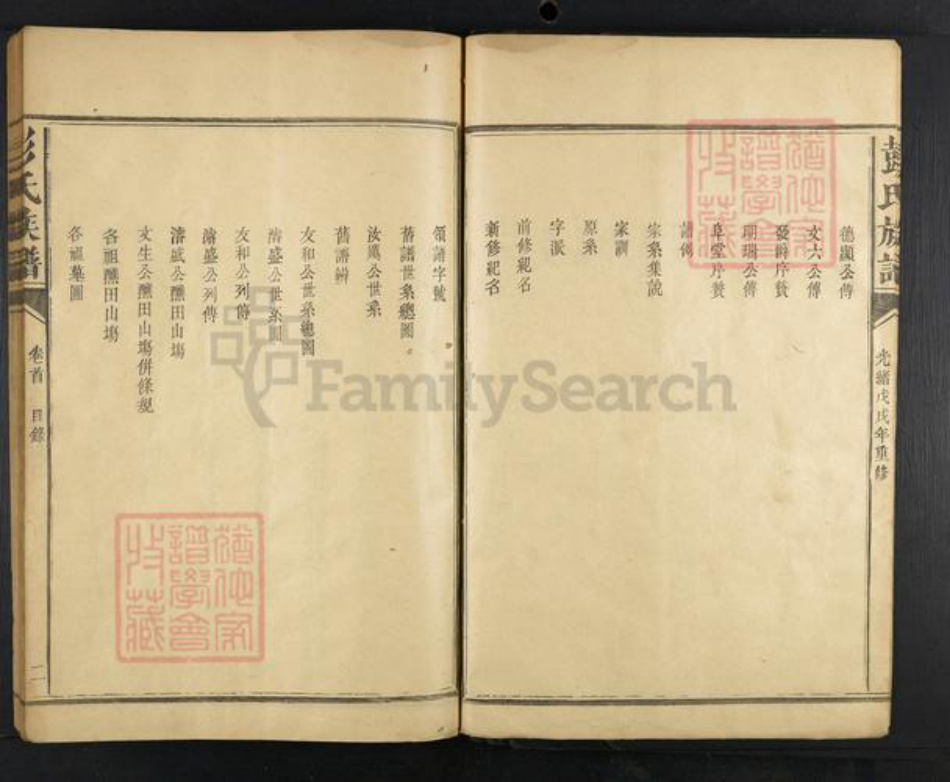 彭氏族譜
光緒戊戌年重修
德顯公傳
文六公傳
發嗣序贊
明瑞公傳
阜堂片贊
譜傳
宗系集說
家訓
原系
字派
前修紀名
新修紀名
領譜字號
舊譜世系總圖。
汝公世系
舊譜辨
友和公世系總圖
濬盛公世系圖
友和公列傳
濬盛公列傳
濬盛公醮田山塲
文生公醮田山塲併條規
各祖醮田山塲
各祖墓圖
彭氏族譜
卷首
目錄
二
譜學會
收藏
譜學會
收藏
FamilySearch